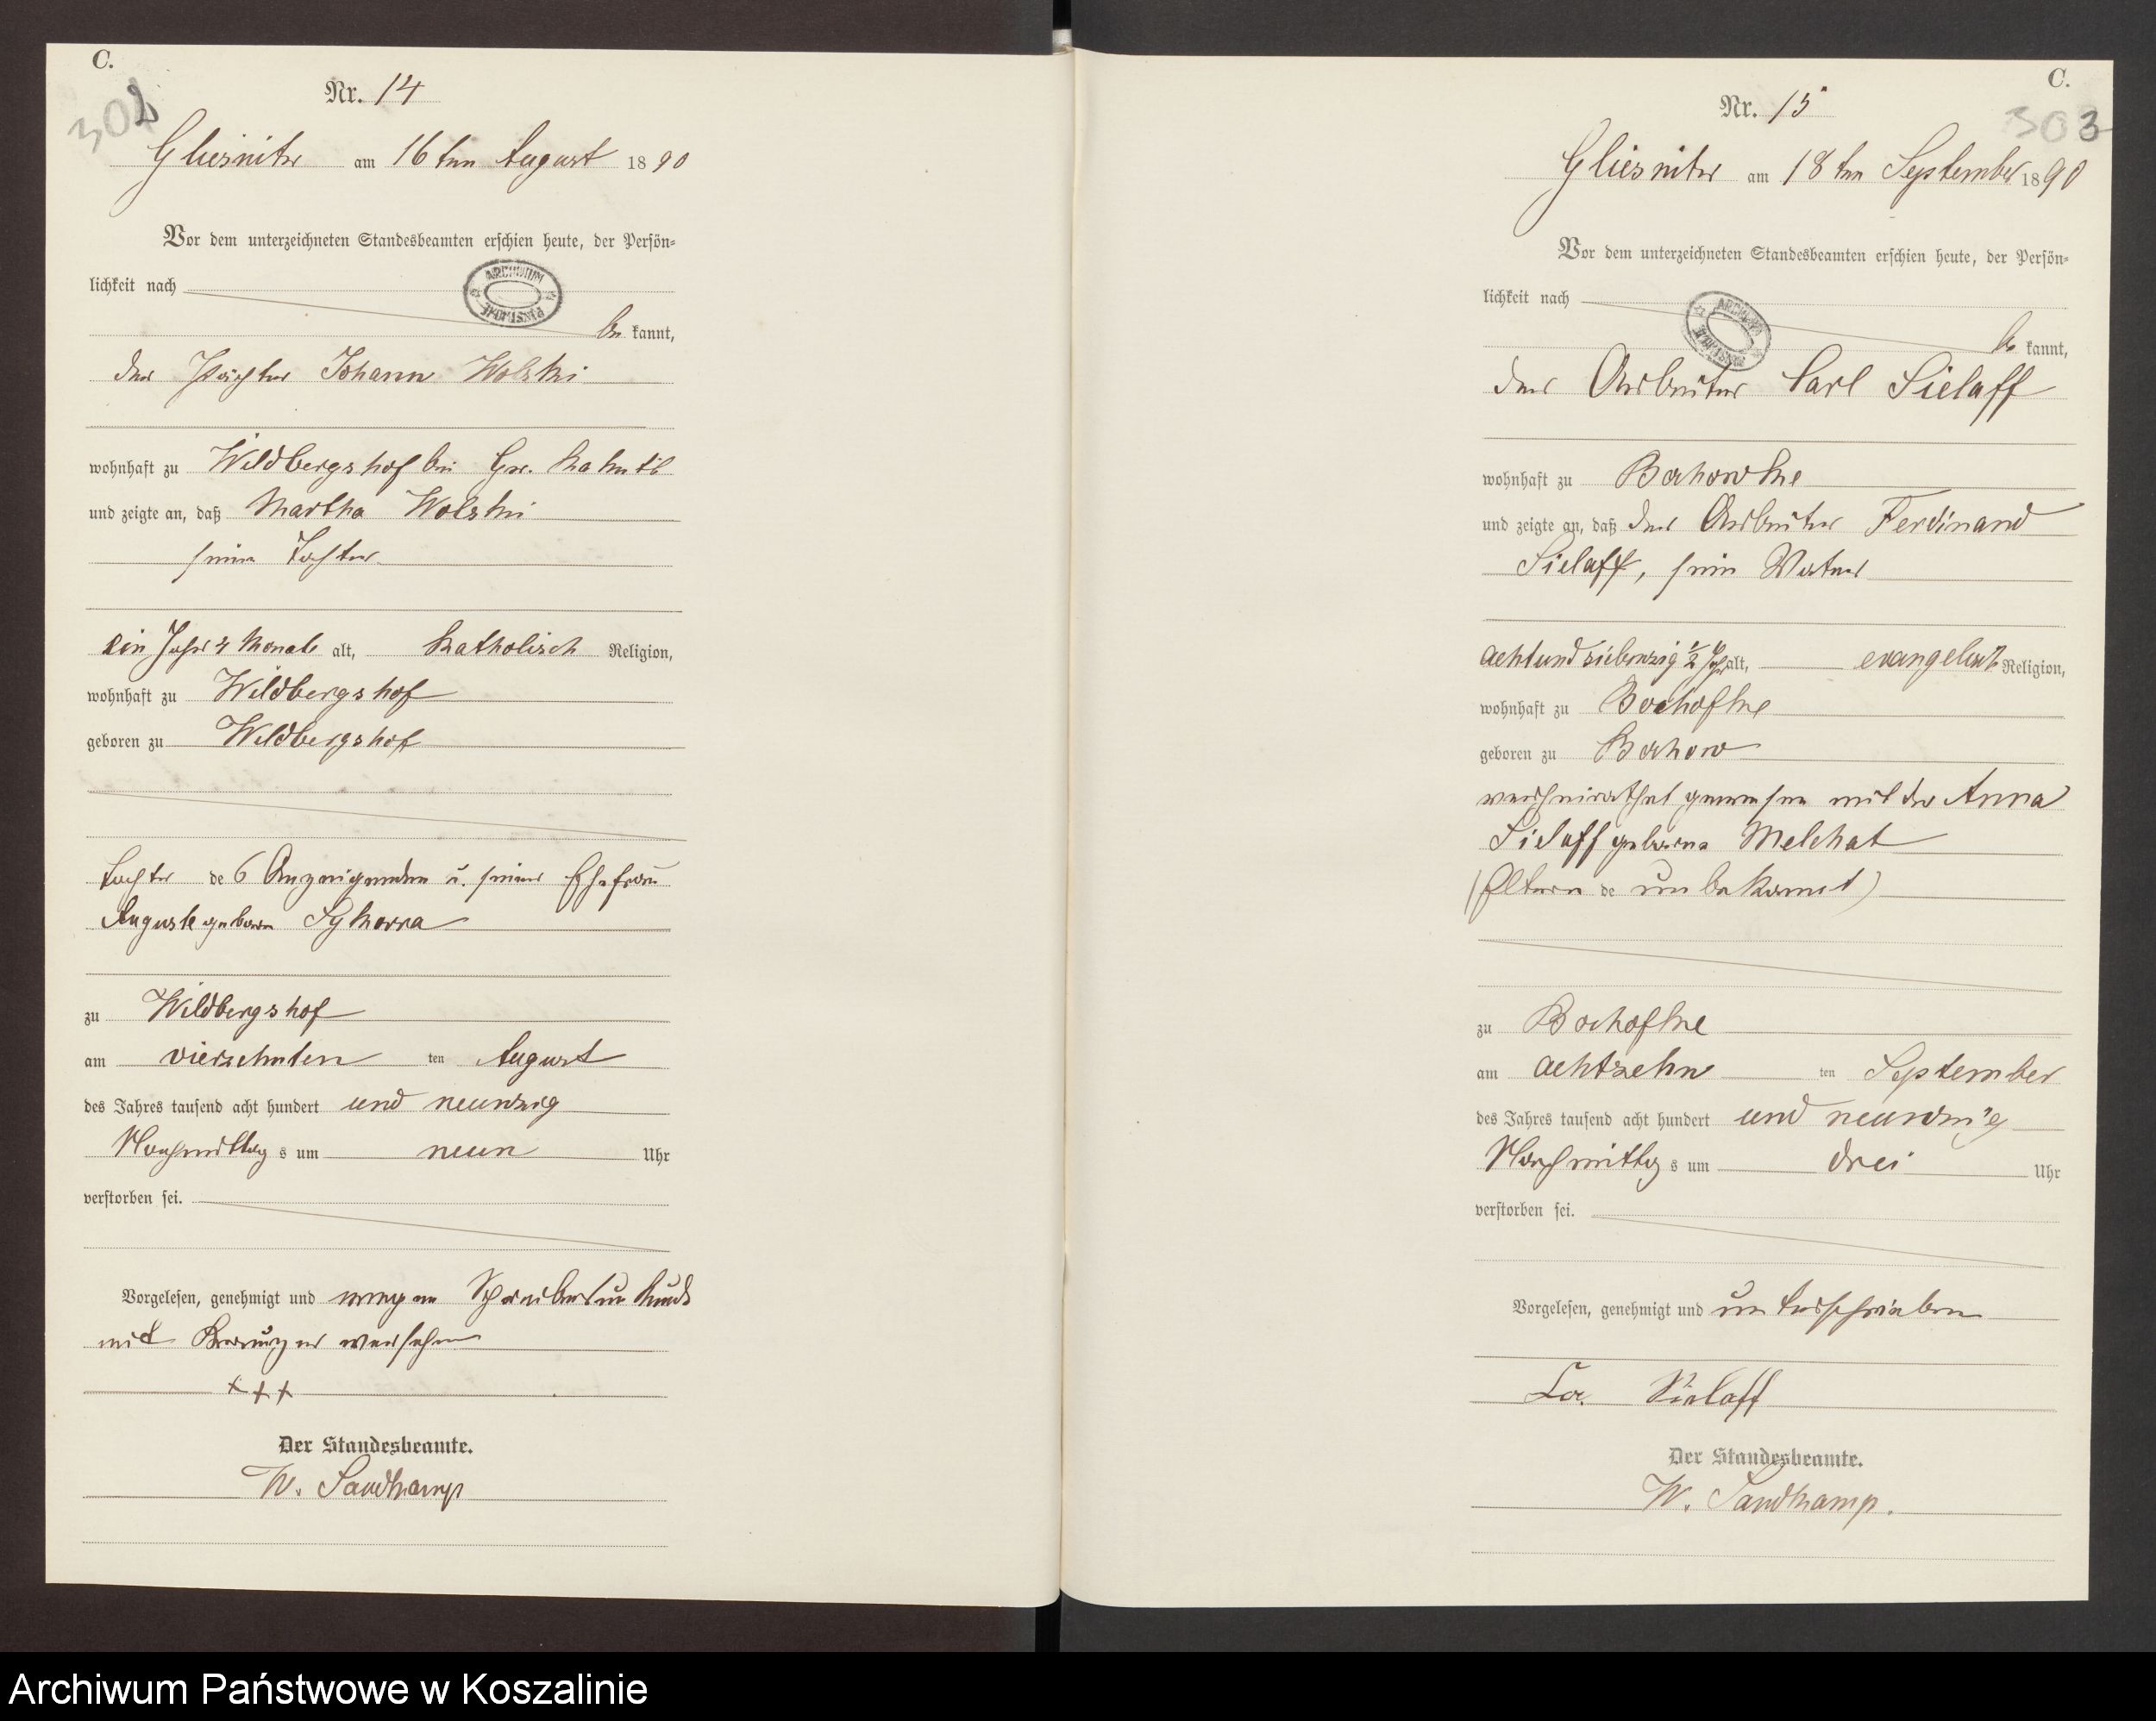 C.
302
Nr. 14
Gliesnitz am 16ten August 1890
Vor dem unterzeichneten Standesbeamten erschien heute, der Persön=
lichkeit nach
ARCHIWUM
PAŃSTWOWE
be kannt,
der Pächter Johann Wolski
wohnhaft zu Wildbergshof bei Gr.
und zeigte an, daß Martha Wolski
seine Tochter
ein Jahr 4 Monate alt, katholisch Religion,
wohnhaft zu Wildbergshof
geboren zu Wildbergshof
Tochter des Anzeigenden u. seiner Ehefrau
Auguste geborne Sykorra
zu Wildbergshof
am vierzehnten ten August
des Jahres tausend acht hundert und neunzig
Nachmittag s um neun Uhr
verstorben sei.
Vorgelesen, genehmigt und wegen Schreibensunkunde
mit Kreuzen versehen
+++
Der Standesbeamte.
W. Sandkamp
C.
303
Nr. 15
Gliesnitz am 18ten September 1890
Vor dem unterzeichneten Standesbeamten erschien heute, der Persön=
lichkeit nach
ARCHIWUM
PAŃSTWOWE
be kannt,
der Arbeiter Carl Sielaff
wohnhaft zu Bochowke
und zeigte an, daß der Arbeiter Ferdinand
Sielaff, sein Vater
achtundsiebenzig ½ Jahr alt, evangelisch Religion,
wohnhaft zu Bochofke
geboren zu Bochow
verheirathet gewesen mit der Anna
Sielaff geborene Melchat
(Eltern de unbekannt)
zu Bochofke
am achtzehn ten September
des Jahres tausend acht hundert und neunzig
Nachmittag s um drei Uhr
verstorben sei.
Vorgelesen, genehmigt und unterschrieben
Ca. Sielaff
Der Standesbeamte.
W. Sandkamp.
Archiwum Państwowe w Koszalinie